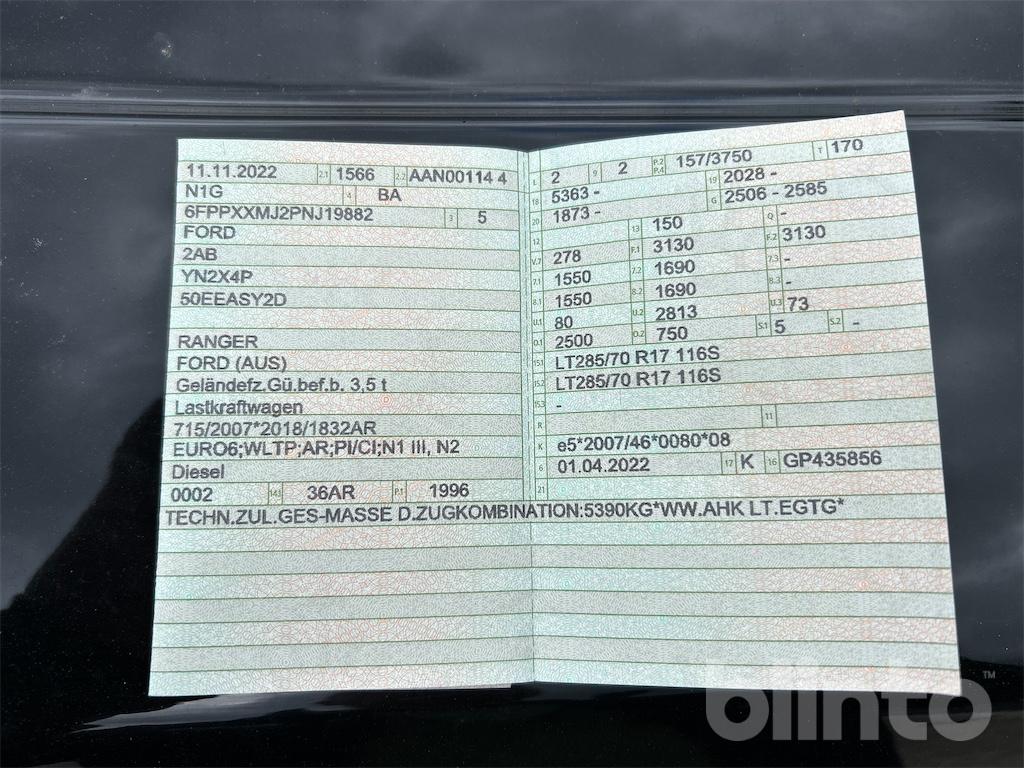 11.11.2022 2.1 1566 2.2 AAN00114 4
N1G 4 BA
6FPPXXMJ2PNJ19882 3 5
FORD
2AB
YN2X4P
50EEASY2D
RANGER
FORD (AUS)
Geländefz.Gü.bef.b. 3,5 t
Lastkraftwagen
715/2007*2018/1832AR
EURO6;WLTP;AR;PI/CI;N1 III, N2
Diesel
0002 14.1 36AR P.1 1996
L 2 9 2 P.2 P.4 157/3750 T 170
18 5363 - 19 2028 -
20 1873 - G 2506 - 2585
12 13 150 Q -
V.7 278 F.1 3130 F.2 3130
7.1 1550 7.2 1690 7.3 -
8.1 1550 8.2 1690 8.3 -
U.1 80 U.2 2813 U.3 73
O.1 2500 O.2 750 S.1 5 S.2 -
15.1 LT285/70 R17 116S
15.2 LT285/70 R17 116S
15.3 -
R 11
K e5*2007/46*0080*08
6 01.04.2022 17 K 16 GP435856
21
TECHN.ZUL.GES-MASSE D.ZUGKOMBINATION:5390KG*WW.AHK LT.EGTG*
blinto™